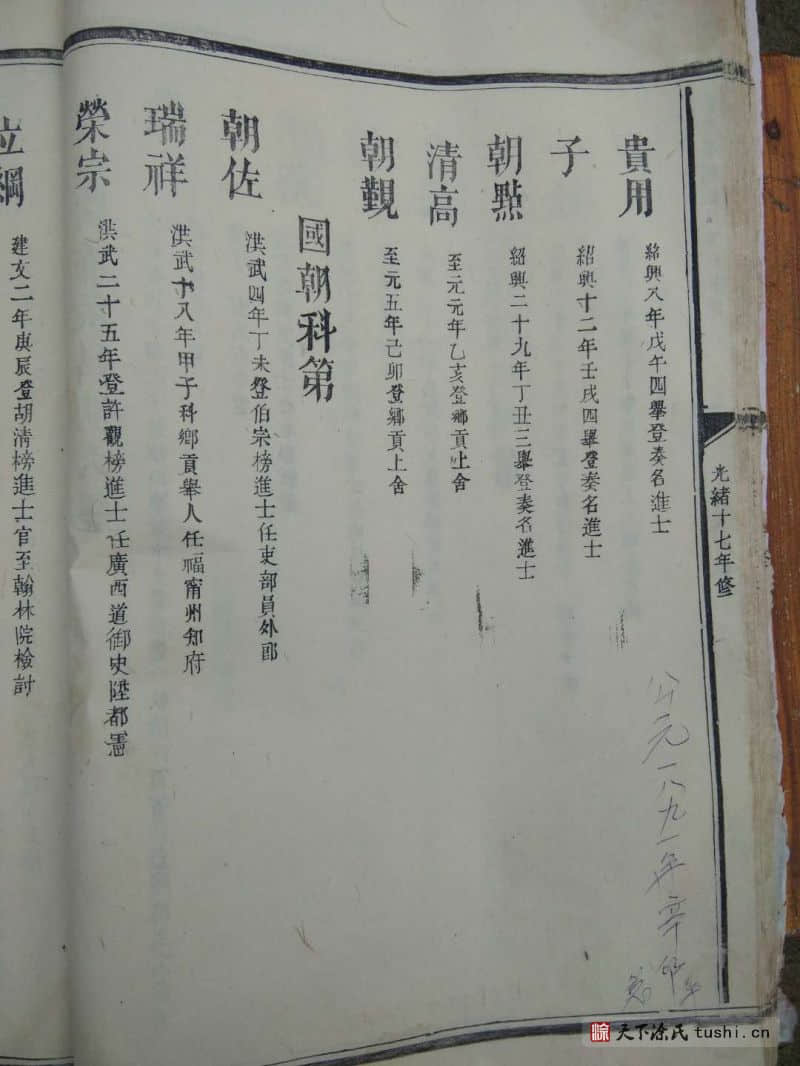 光緒十七年修
貴用 紹興八年戊午四舉登奏名進士
子 紹興十二年壬戌四舉登奏名進士
朝點 紹興二十九年丁丑三舉登奏名進士
清高 至元元年乙亥登鄉貢上舍
朝觀 至元五年己卯登鄉貢上舍
國朝科第
朝佐 洪武四年丁未登伯宗榜進士任吏部員外郎
瑞祥 洪武十八年甲子科鄉貢舉人任福甯州知府
榮宗 洪武二十五年登許觀榜進士任廣西道御史陞都憲
立綱 建文二年庚辰登胡清榜進士官至翰林院檢討
公元一八九一年辛卯年
天下涂氏 tushi.cn